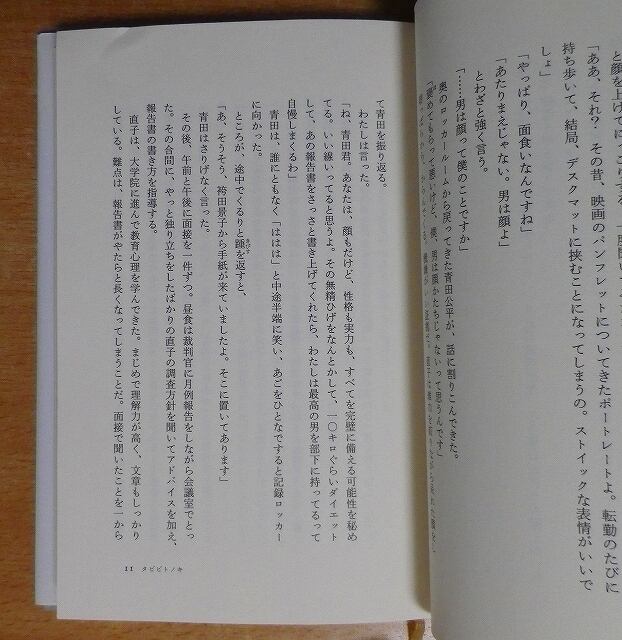 と顔を上げてにこりする。
「ああ、それ? その昔、映画のパンフレットについてきたポートレートよ。転勤のたびに
持ち歩いて、結局、デスクマットに挟むことになってしまうの。ストイックな表情がいいで
しょ」
「やっぱり、面食いなんですね」
「あたりまえじゃない。男は顔よ」
とわざと強く言う。
「……男は顔って僕のことですか」
奥のロッカールームから戻ってきた青田公平が、話に割りこんできた。
「褒めてもらって悪いけど、僕、男は顔かたちじゃないって思うんです」
て青田を振り返る。
わたしは言った。
「ね、青田君。あなたは、顔もだけど、性格も実力も、すべてを完璧に備える可能性を秘め
てる。いい線いってると思うよ。その無精ひげをなんとかして、一〇キロぐらいダイエット
して、あの報告書をさっさと書き上げてくれたら、わたしは最高の男を部下に持ってるって
自慢しまくるわ」
青田は、誰にともなく「ははは」と中途半端に笑い、あごをひとなですると記録ロッカー
に向かった。
ところが、途中でくるりと踵を返すと、
「あ、そうそう、袴田景子から手紙が来ていましたよ。そこに置いてあります」
青田はさりげなく言った。
その後、午前と午後に面接を一件ずつ。昼食は裁判官に月例報告をしながら会議室でとっ
た。その合間に、やっと独り立ちをしたばかりの直子の調査方針を聞いてアドバイスを加え、
報告書の書き方を指導する。
直子は、大学院に進んで教育心理を学んできた。まじめで理解力が高く、文章もしっかり
している。難点は、報告書がやたらと長くなってしまうことだ。面接で聞いたことを一から
11 タビビトノキ